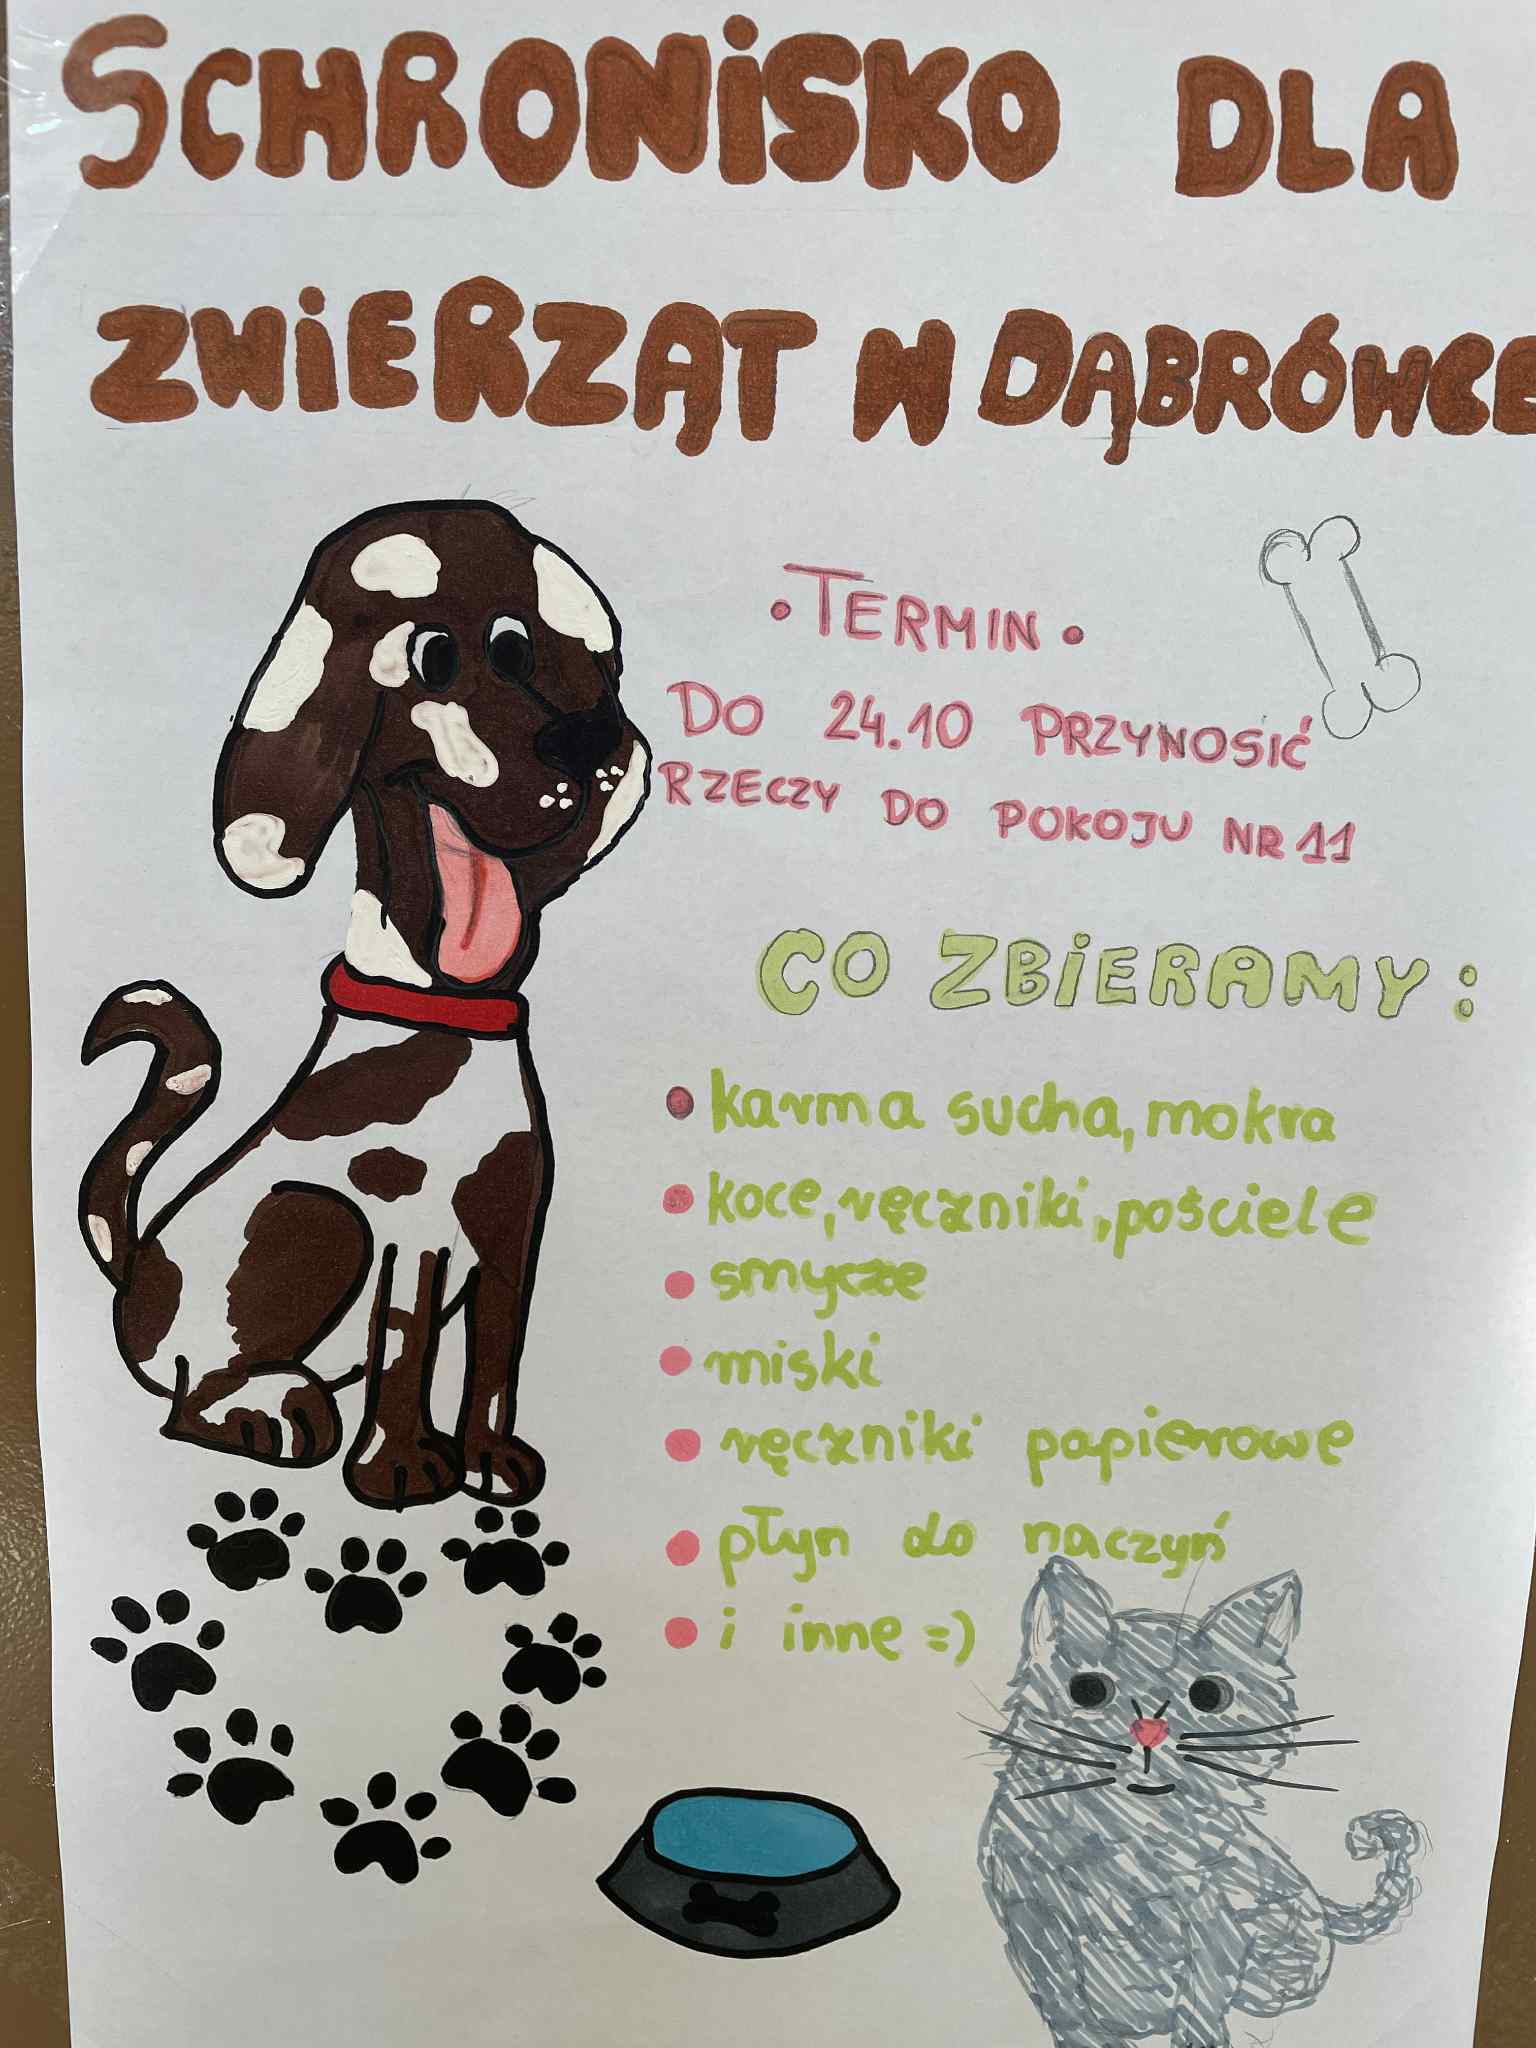 SCHRONISKO DLA
ZWIERZĄT W DĄBRÓWCE
• TERMIN •
DO 24.10 PRZYNOSIĆ
RZECZY DO POKOJU NR 11
CO ZBIERAMY:
• karma sucha, mokra
• koce, ręczniki, pościele
• smycze
• miski
• ręczniki papierowe
• płyn do naczyń
• i inne =)